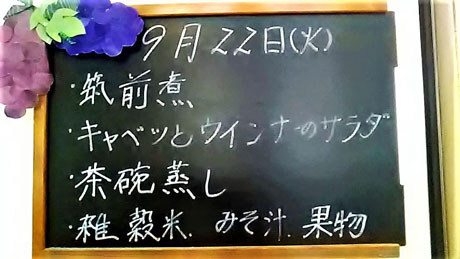 9月22日(火)
・筑前煮
・キャベツとウインナーのサラダ
・茶碗蒸し
・雑穀米.みそ汁.果物